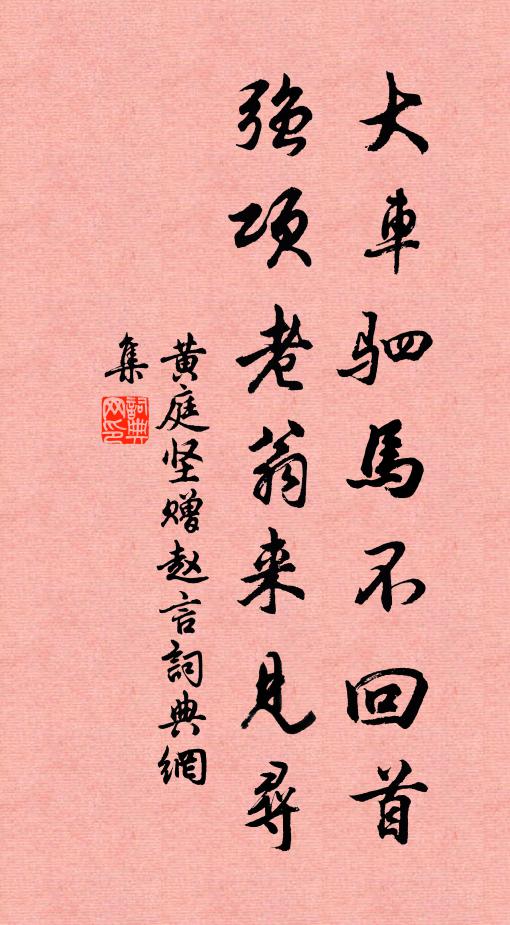 大車駟馬不回首
强项老翁来見尋
黄庭坚赠赵言詞典網
集
詞典網印